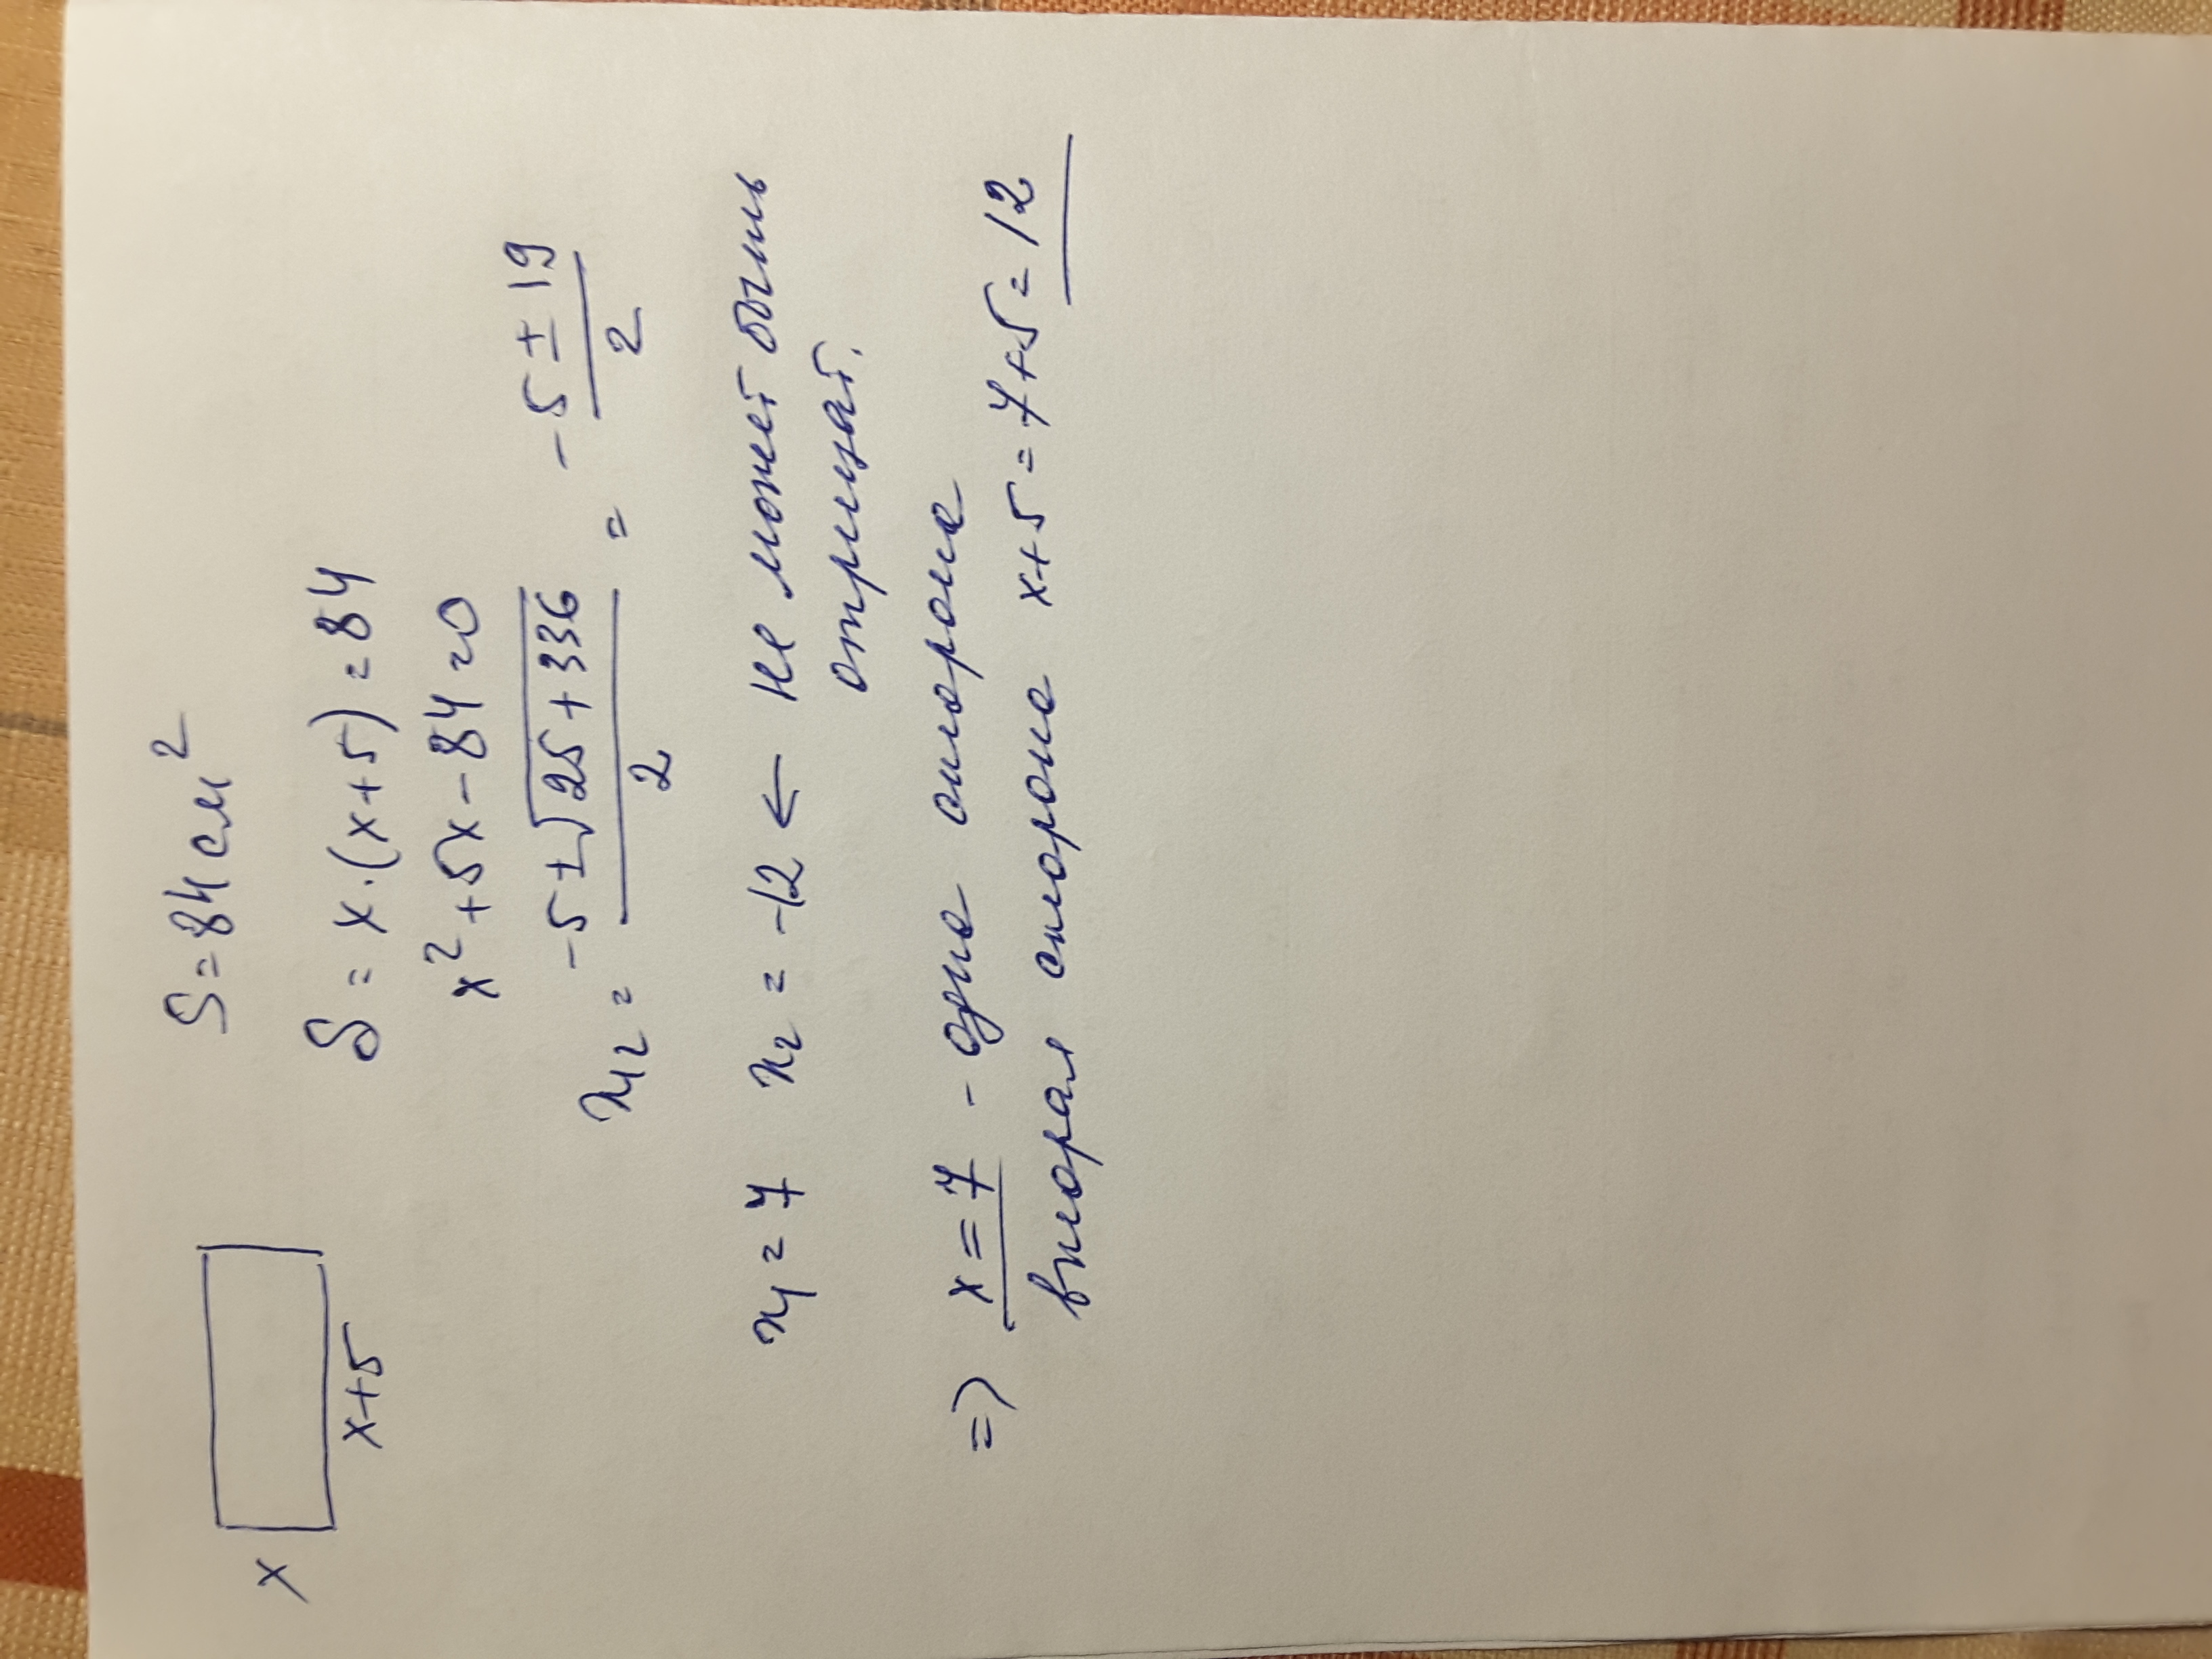 x
x+5
S=84см²
S = x·(x+5)=84
x²+5x-84=0
x₁₂= (-5±√(25+336))/2 = (-5±19)/2
x₁=7 x₂=-12 ← не может быть
отрицат.
=> x=7 - одна сторона
вторая сторона x+5=7+5=12